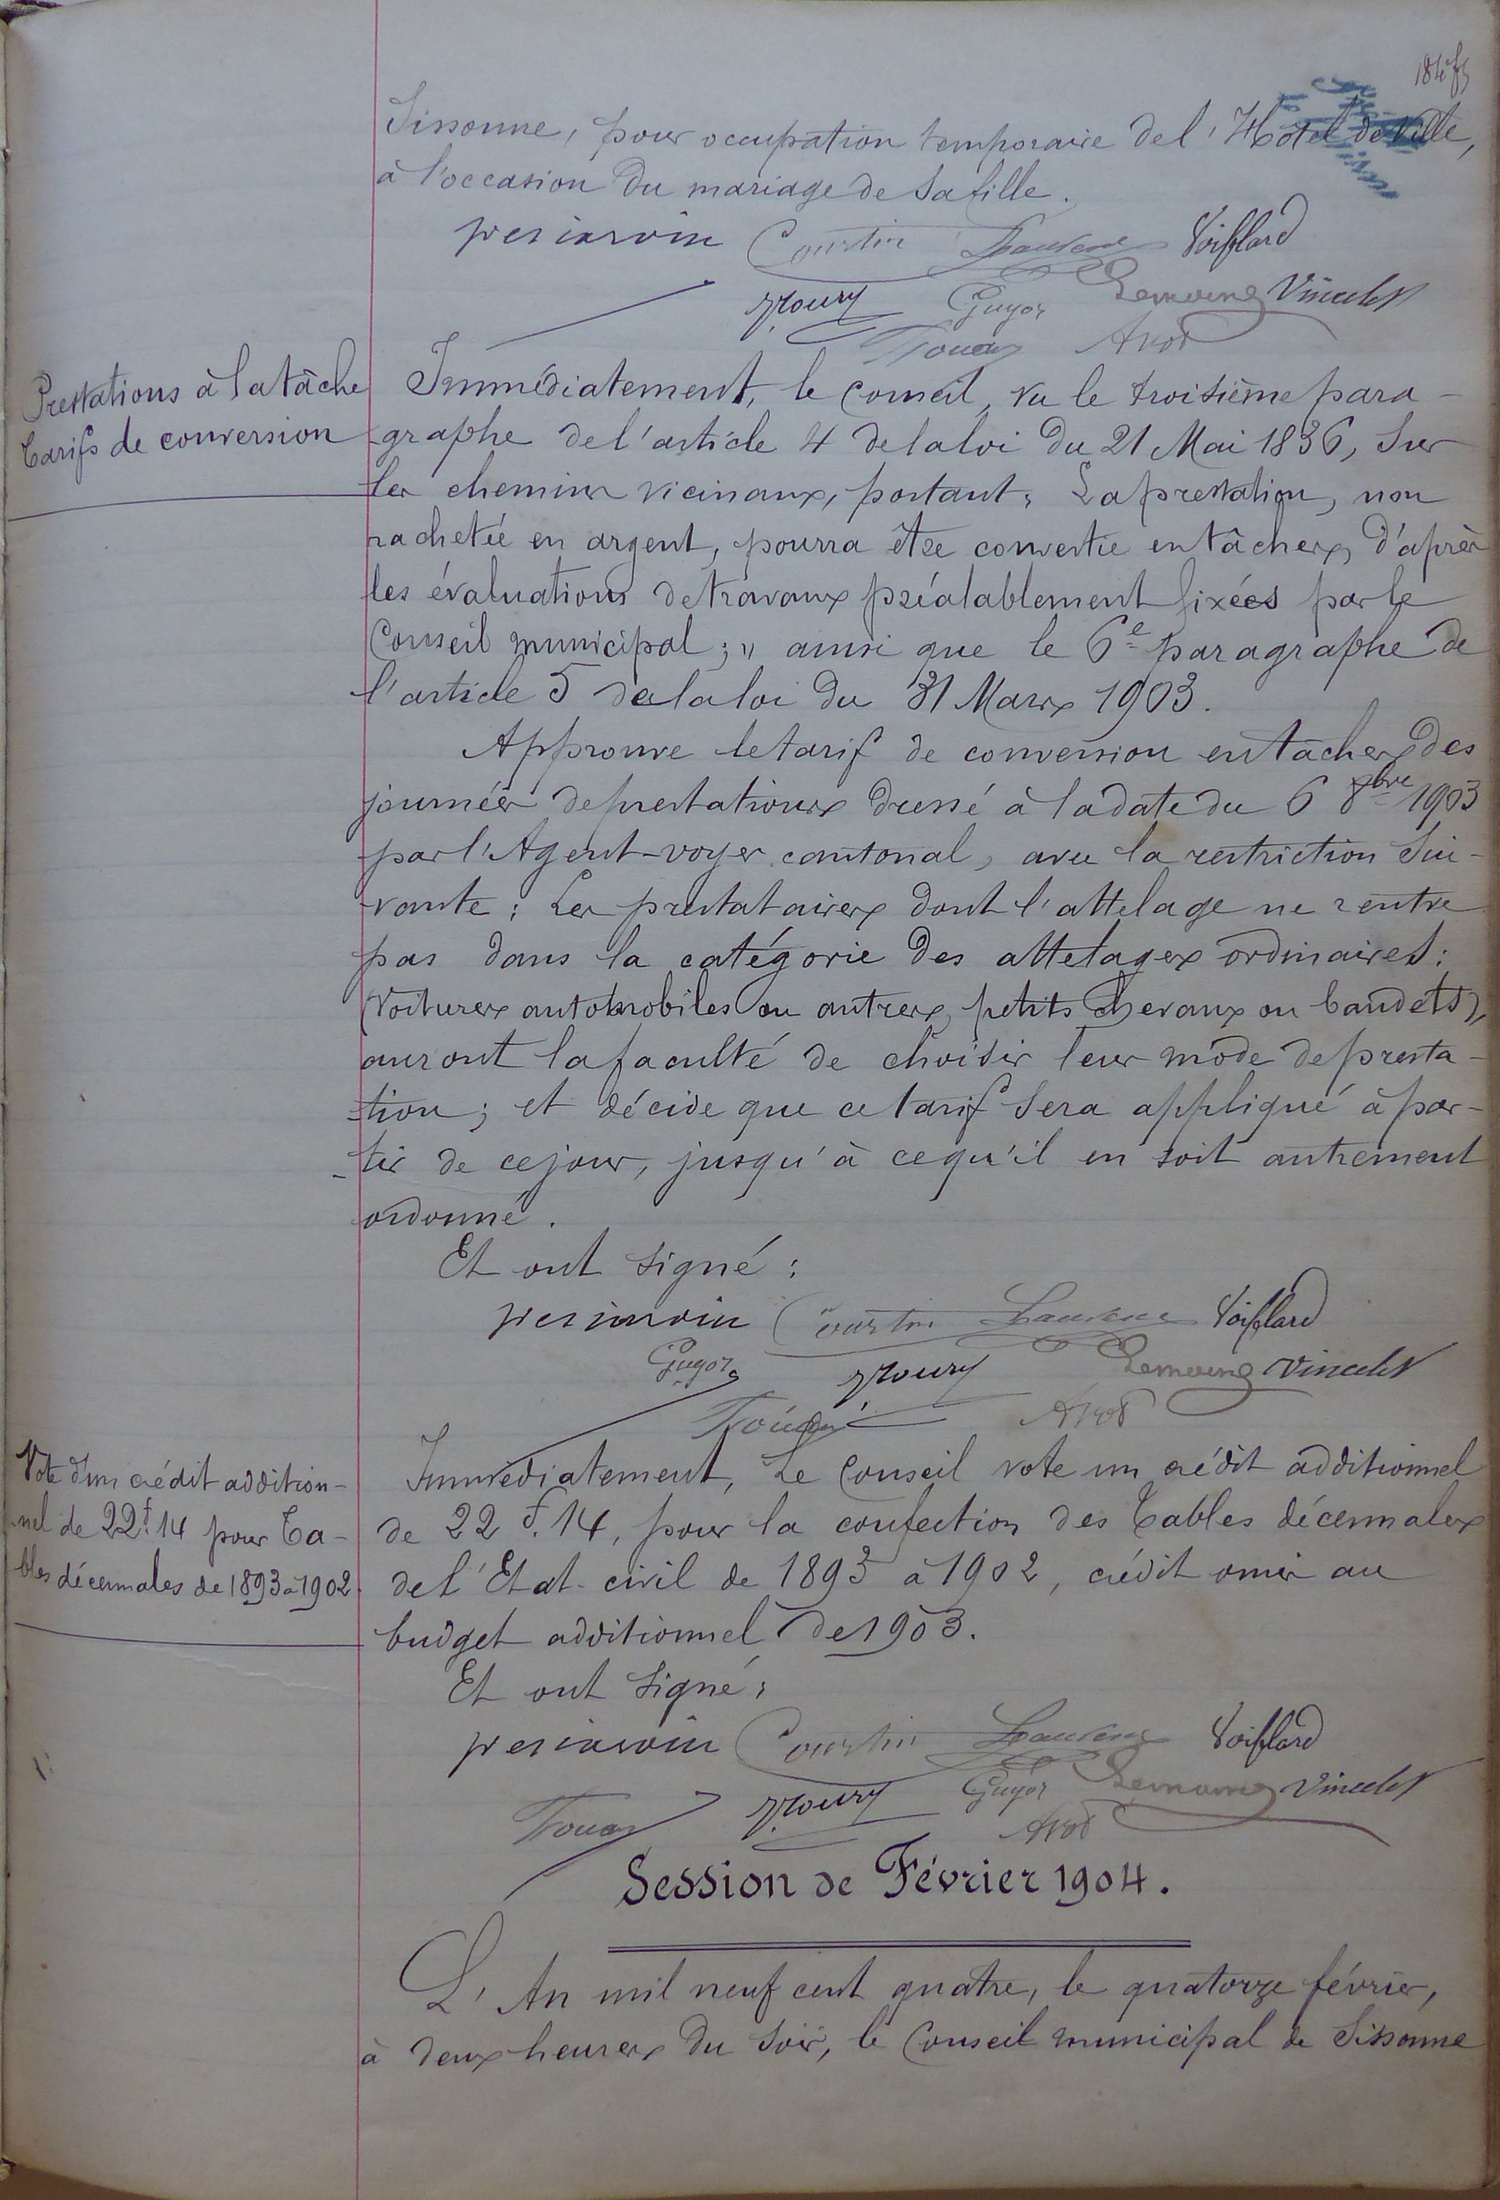 Sissonne, pour occupation temporaire de l'Hôtel de Ville,
à l'occasion du mariage de sa fille.
Courtin Voifflard
Moury Guyot Lemoine Vincelet
Avot
Prestations à la tâche
Tarifs de conversion
Immédiatement, le Conseil, vu le troisième para-
graphe de l'article 4 de la loi du 21 Mai 1836, sur
les chemins vicinaux, portant: La prestation, non
rachetée en argent, pourra être convertie en tâches, d'après
les évaluations de travaux préalablement fixées par le
Conseil municipal; " ainsi que le 6e paragraphe de
l'article 5 de la loi du 31 Mars 1903.
Approuve le tarif de conversion en tâches des
journées de prestations dressé à la date du 6 8bre 1903
par l'Agent-voyer cantonal, avec la restriction sui-
vante: Les prestataires dont l'attelage ne rentre
pas dans la catégorie des attelages ordinaires:
(Voitures automobiles ou autres, petits chevaux ou baudets),
auront la faculté de choisir leur mode de presta-
tion; et décide que ce tarif sera appliqué à par-
tir de ce jour, jusqu'à ce qu'il en soit autrement
ordonné.
Et ont signé:
Courtin Voifflard
Guyot Moury Lemoine Vincelet
Avot
Vote d'un crédit addition-
nel de 22f.14 pour Ta-
bles décennales de 1893 à 1902.
Immédiatement, Le Conseil vote un crédit additionnel
de 22f.14, pour la confection des Tables décennales
de l'Etat-civil de 1893 à 1902, crédit omis au
budget additionnel de 1903.
Et ont signé:
Courtin Voifflard
Moury Guyot Lemoine Vincelet
Avot
Session de Février 1904.
L'An mil neuf cent quatre, le quatorze février,
à deux heures du soir, le Conseil municipal de Sissonne